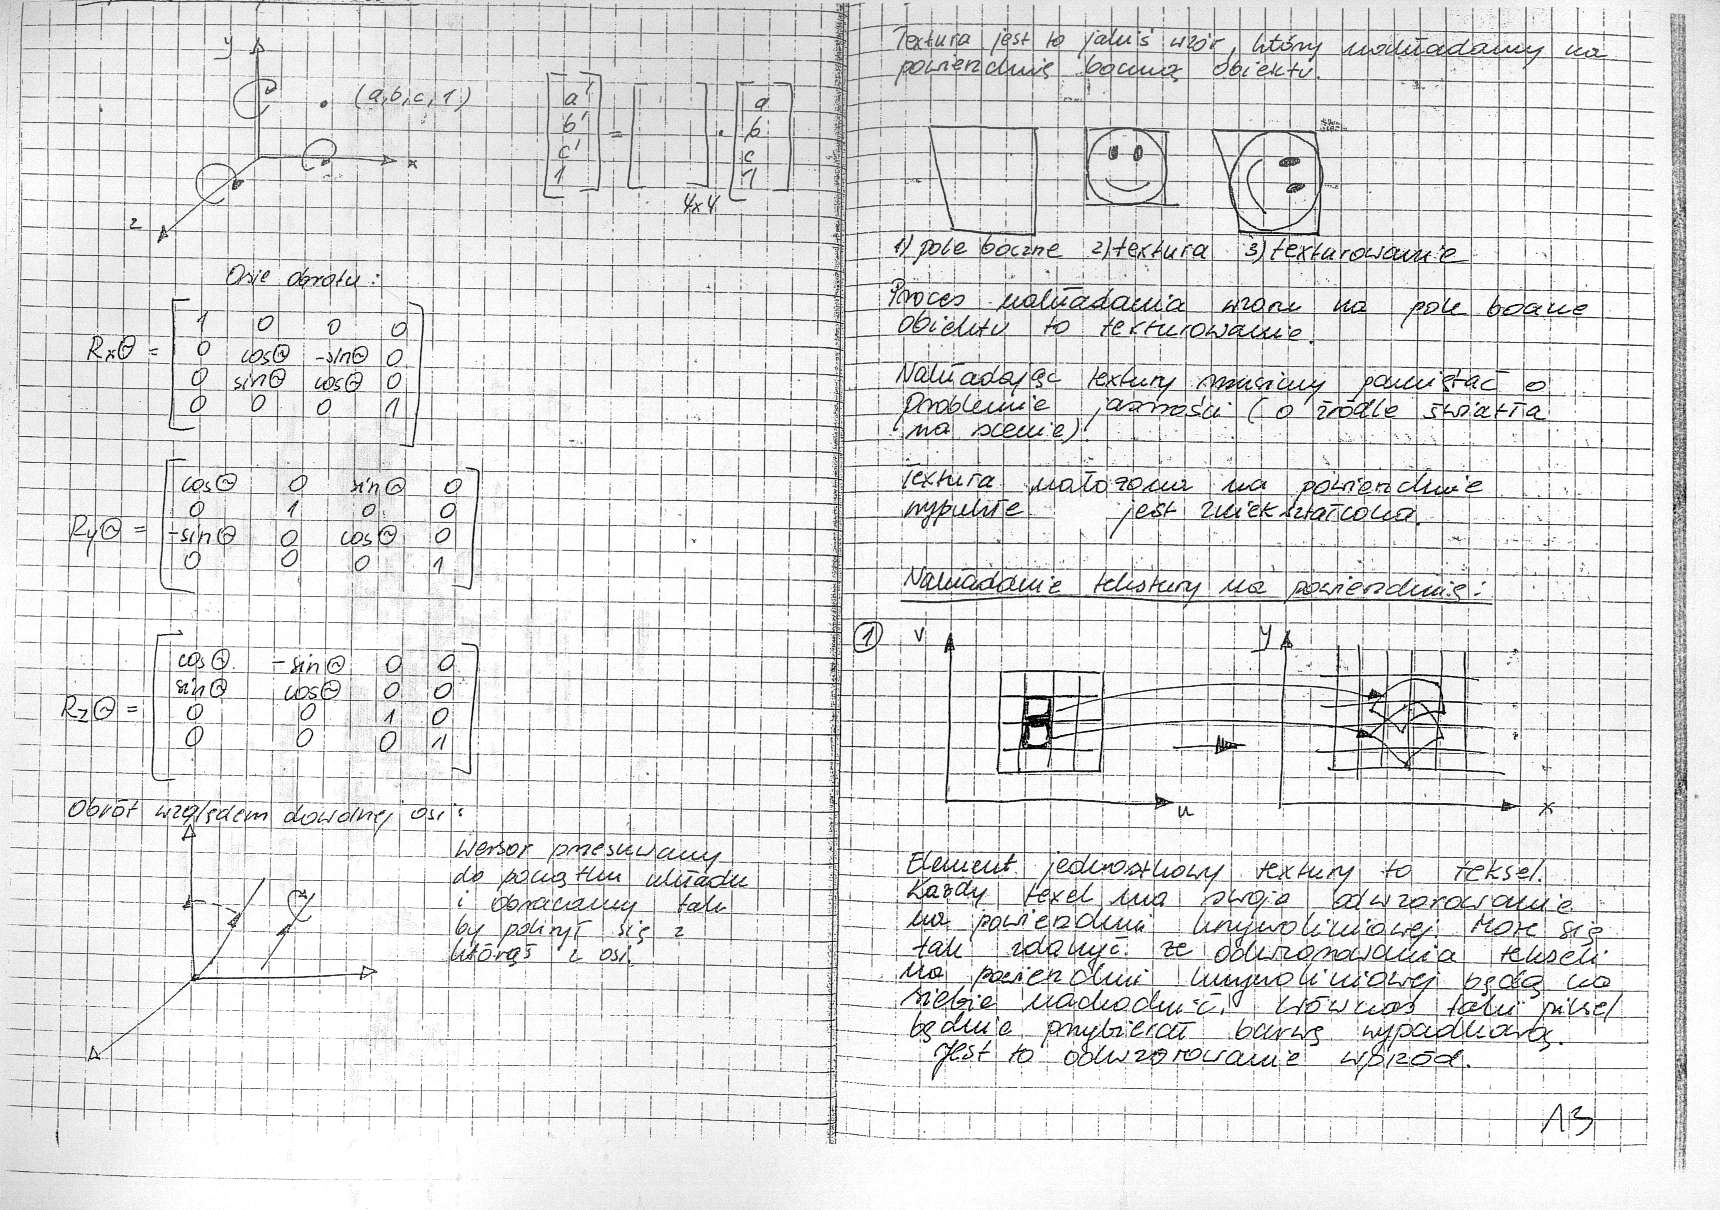 y
(a, b, c, 1)
x
z
a'
b'
c'
1
=
4x4
·
a
b
c
1
Osie obrotu:
RxΘ =
1 0 0 0
0 cosΘ -sinΘ 0
0 sinΘ cosΘ 0
0 0 0 1
RyΘ =
cosΘ 0 sinΘ 0
0 1 0 0
-sinΘ 0 cosΘ 0
0 0 0 1
RzΘ =
cosΘ -sinΘ 0 0
sinΘ cosΘ 0 0
0 0 1 0
0 0 0 1
Obrót względem dowolnej osi:
Wersor przesuwamy
do początku układu
i obracamy tak
by pokrył się z
którąś z osi.
Textura jest to jakiś wzór, który nakładamy na
powierzchnię boczną obiektu.
1) pole boczne 2) textura 3) texturowanie
Proces nakładania wzoru na pole boczne
obiektu to texturowanie.
Nakładając textury musimy pamiętać o
problemie jasności (o źródle światła
na scenie)
Textura nałożona na powierzchnie
wypukłe jest zniekształcona.
Nakładanie tekstury na powierzchnię:
1
v
u
y
x
Element jednostkowy textury to teksel.
Każdy texel ma swoje odwzorowanie
na powierzchni krzywoliniowej. Może się
tak zdarzyć że odwzorowania tekseli
na powierzchni krzywoliniowej będą na
siebie nachodzić, wówczas taki piksel
będzie przybierał barwę wypadkową.
Jest to odwzorowanie wprzód.
13